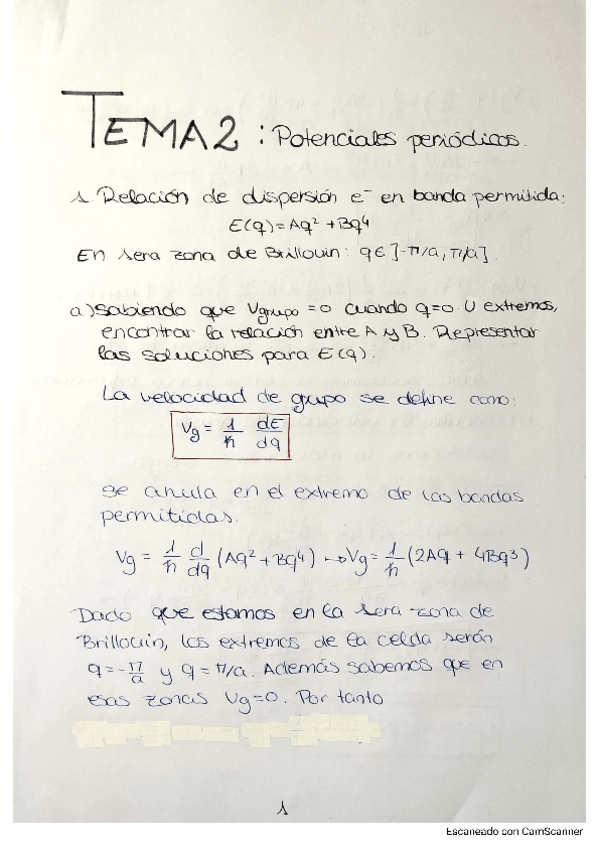 TEMA 2 : Potenciales periódicos.
1. Relación de dispersión e⁻ en banda permitida:
E(q) = Aq² + Bq⁴
En 1era zona de Brillouin: q ∈ ]-π/a, π/a].
a) Sabiendo que Vgrupo = 0 cuando q=0 U extremos,
encontrar la relación entre A y B. Representar
las soluciones para E(q).
La velocidad de grupo se define como:
Vg = 1/ħ dE/dq
se anula en el extremo de las bandas
permitidas.
Vg = 1/ħ d/dq (Aq² + Bq⁴) → Vg = 1/ħ (2Aq + 4Bq³)
Dado que estamos en la 1era zona de
Brillouin, los extremos de la celda serán
q = -π/a y q = π/a. Además sabemos que en
esas zonas Vg=0. Por tanto
1
Escaneado con CamScanner